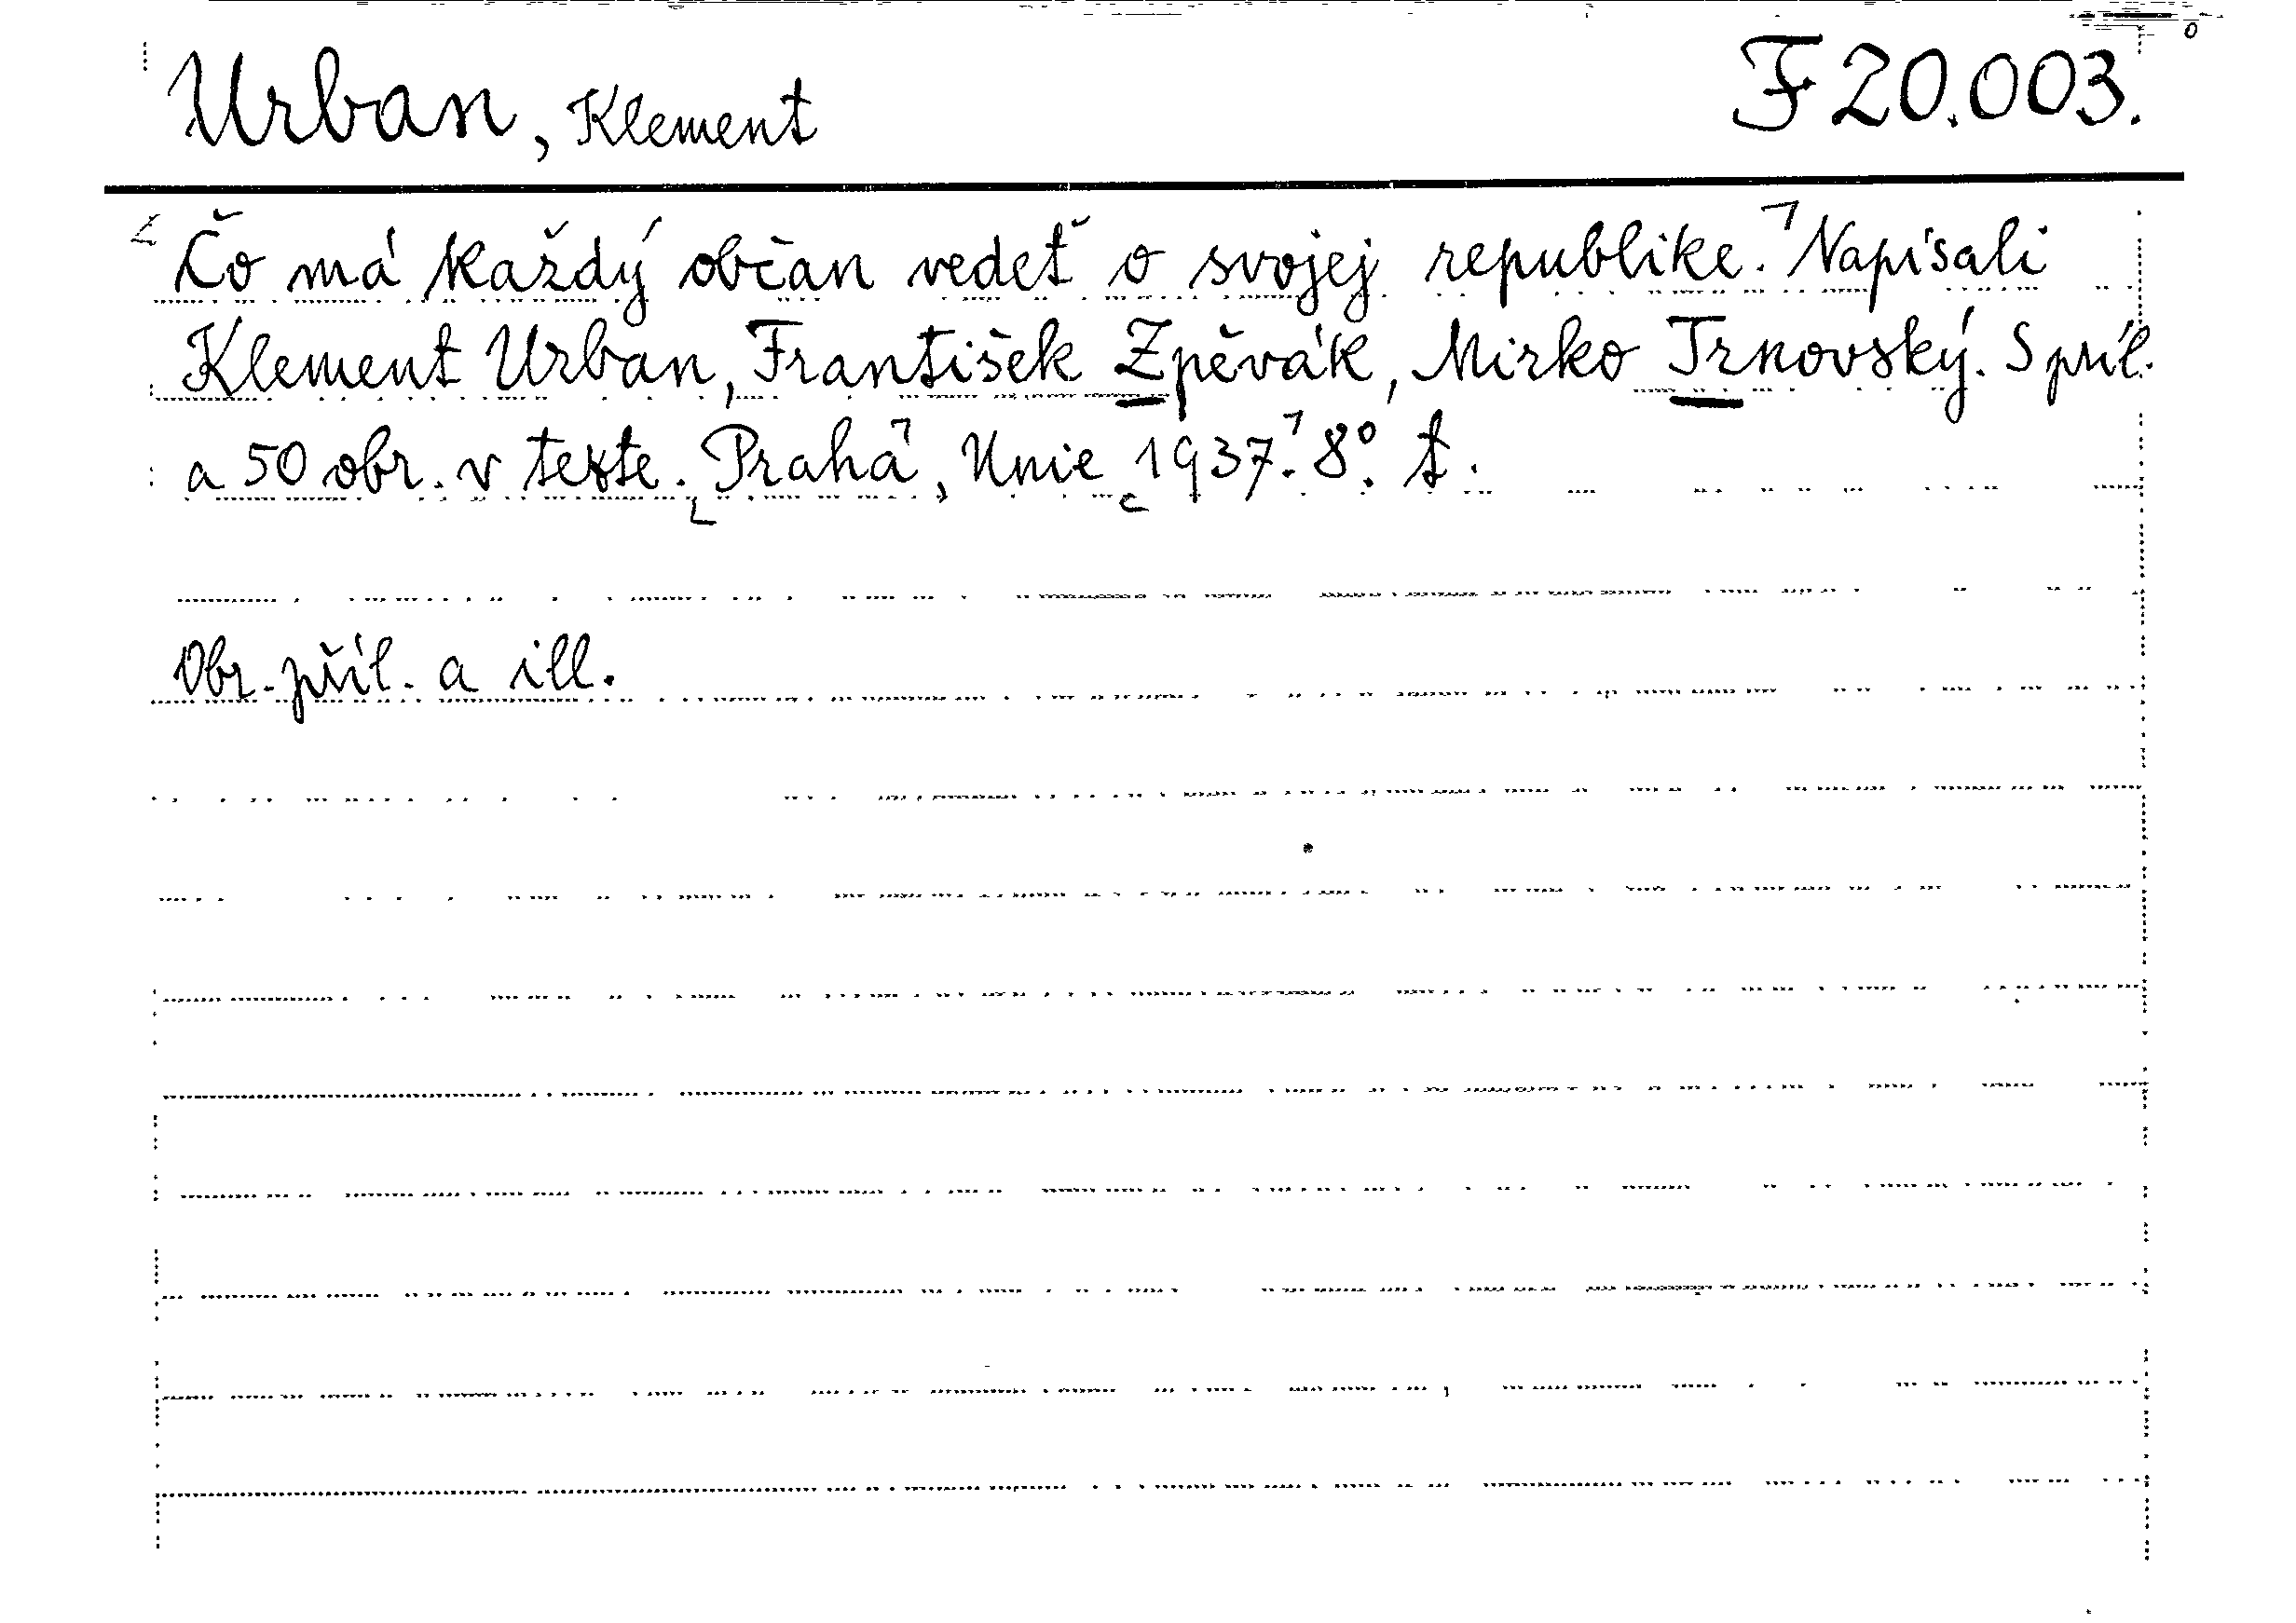 Urban, Klement F 20.003.
Čo má každý občan vedeť o svojej republike. Napísali
Klement Urban, František Zpěvák, Mirko Trnovský. S príl.
a 50 obr. v texte. Praha, Unie 1937. 8°. t.
Obr. příl. a ill.